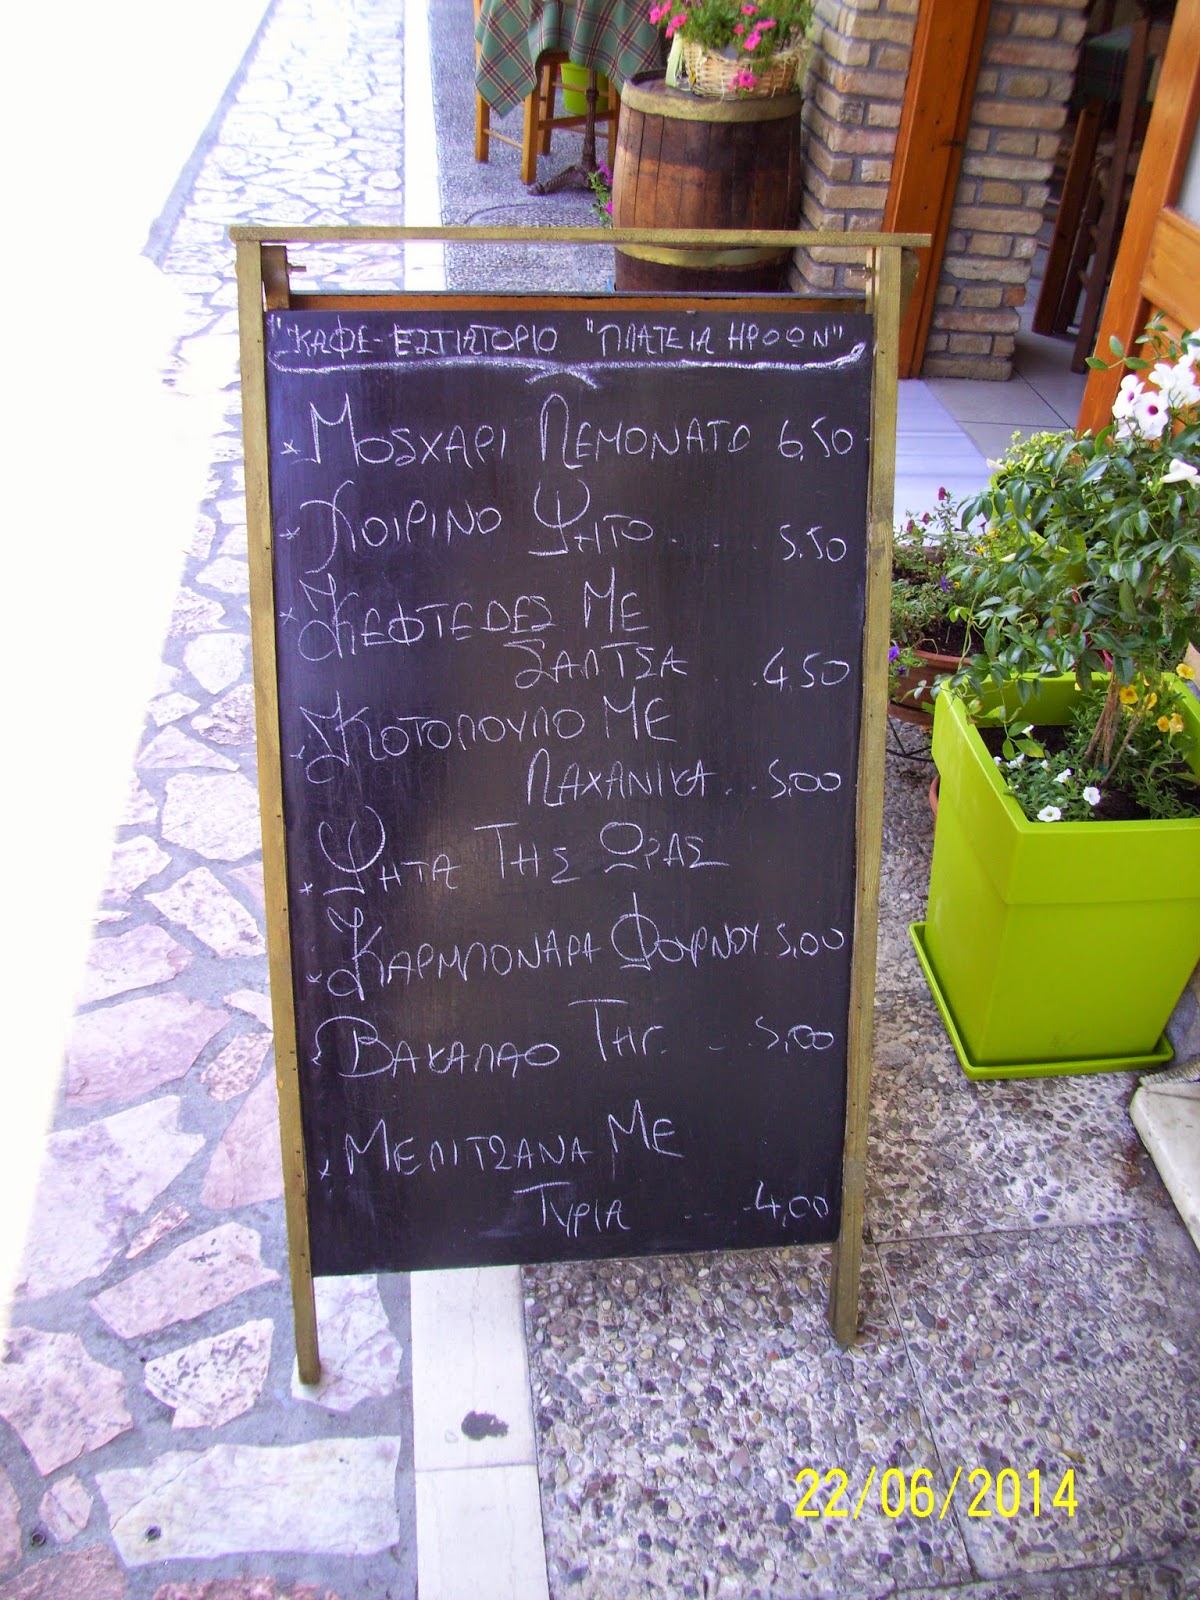 "ΚΑΦΕ-ΕΣΤΙΑΤΟΡΙΟ "ΠΛΑΤΕΙΑ ΗΡΩΩΝ"
* ΜΟΣΧΑΡΙ ΛΕΜΟΝΑΤΟ 6,50
* ΧΟΙΡΙΝΟ ΨΗΤΟ .... 5.50
* ΚΕΦΤΕΔΕΣ ΜΕ
ΣΑΛΤΣΑ . .. 4,50
* ΚΟΤΟΠΟΥΛΟ ΜΕ
ΛΑΧΑΝΙΚΑ .. 5,00
* ΨΗΤΑ ΤΗΣ ΩΡΑΣ
* ΚΑΡΜΠΟΝΑΡΑ ΦΟΥΡΝΟΥ 5,00
* ΒΑΚΑΛΑΟ ΤΗΓ. .. . 5,00
* ΜΕΛΙΤΖΑΝΑ ΜΕ
ΤΥΡΙΑ .... 4,00
22/06/2014